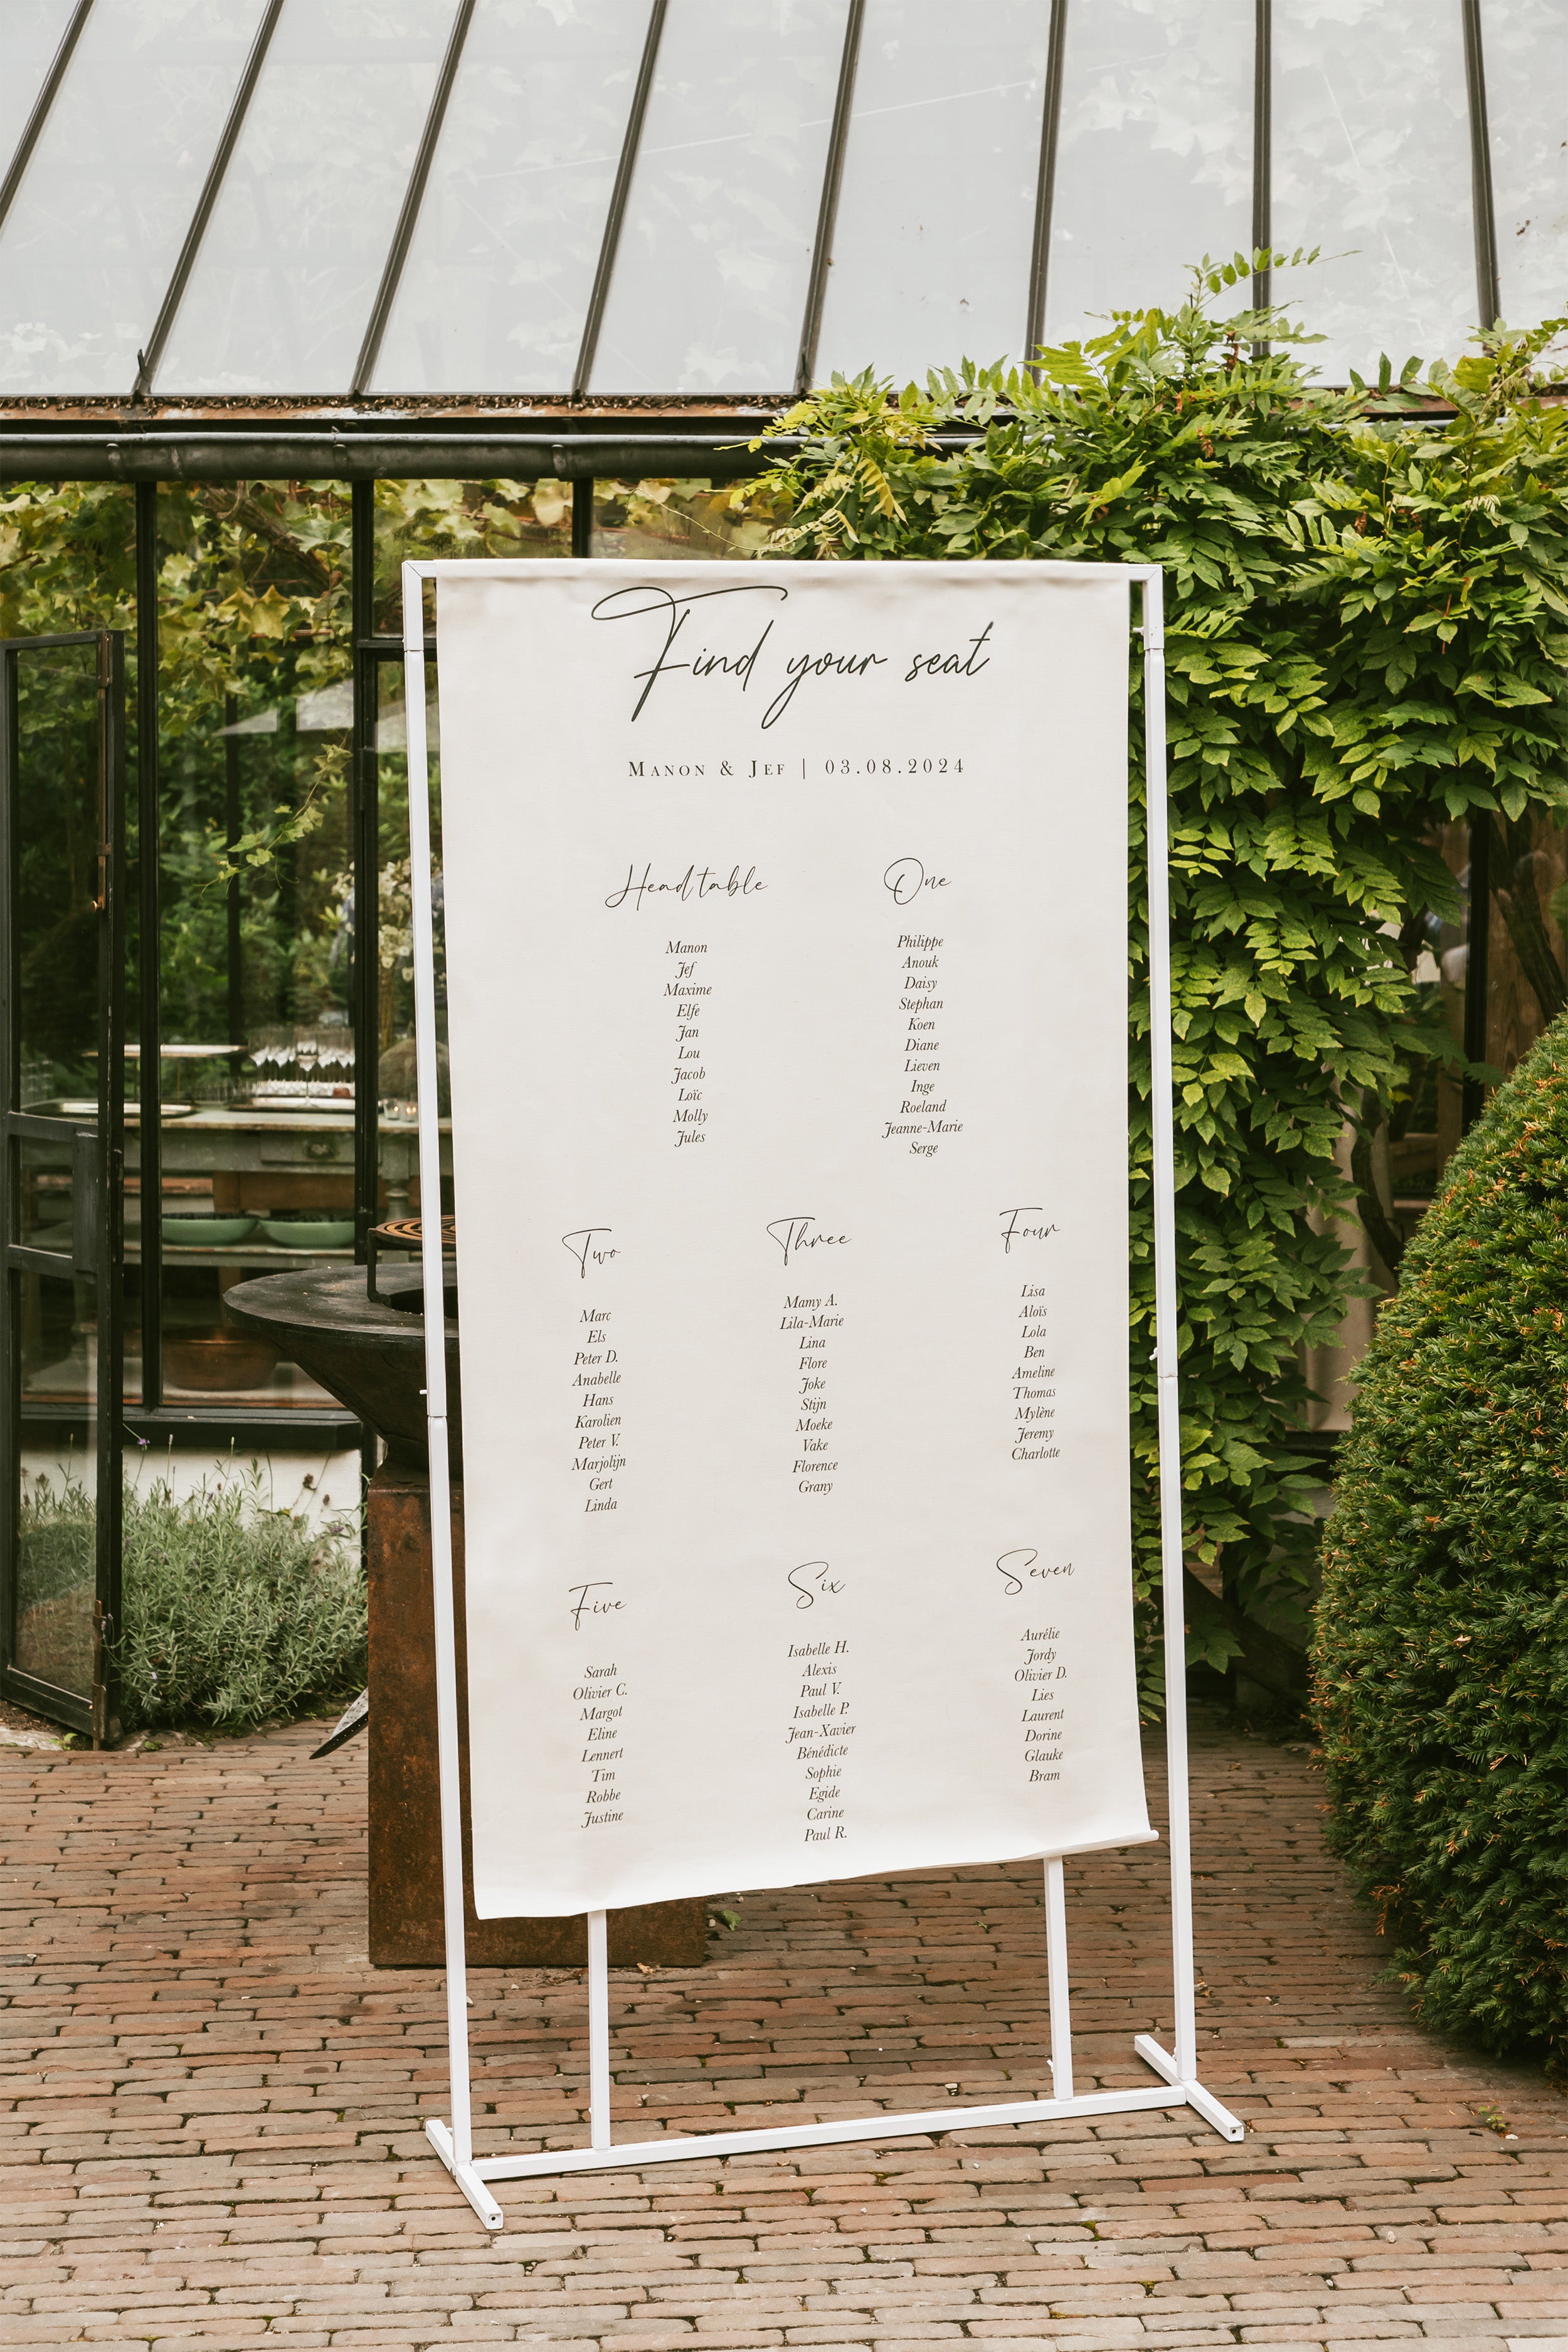 Find your seat
Manon & Jef | 03.08.2024
Head table
Manon
Jef
Maxime
Elfe
Jan
Lou
Jacob
Loïc
Molly
Jules
One
Philippe
Anouk
Daisy
Stephan
Koen
Diane
Lieven
Inge
Roeland
Jeanne-Marie
Serge
Two
Marc
Els
Peter D.
Anabelle
Hans
Karolien
Peter V.
Marjolijn
Gert
Linda
Three
Mamy A.
Lila-Marie
Lina
Flore
Joke
Stijn
Moeke
Vake
Florence
Grany
Four
Lisa
Aloïs
Lola
Ben
Ameline
Thomas
Mylène
Jeremy
Charlotte
Five
Sarah
Olivier C.
Margot
Eline
Lennert
Tim
Robbe
Justine
Six
Isabelle H.
Alexis
Paul V.
Isabelle P.
Jean-Xavier
Bénédicte
Sophie
Egide
Carine
Paul R.
Seven
Aurélie
Jordy
Olivier D.
Lies
Laurent
Dorine
Glauke
Bram